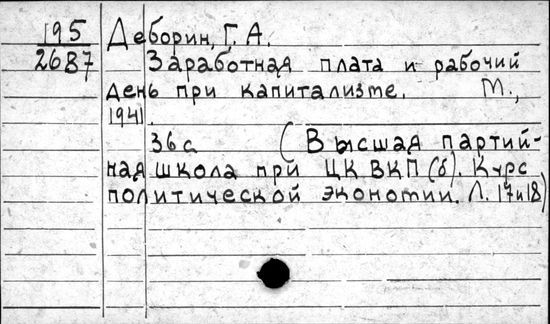 195
2687
Деборин, Г. А.
Заработная плата и рабочий
день при капитализме. М.,
1941.
36 с (Высшая партий-
ная школа при ЦК ВКП(б). Курс
политической экономии. Л. 17 и 18)